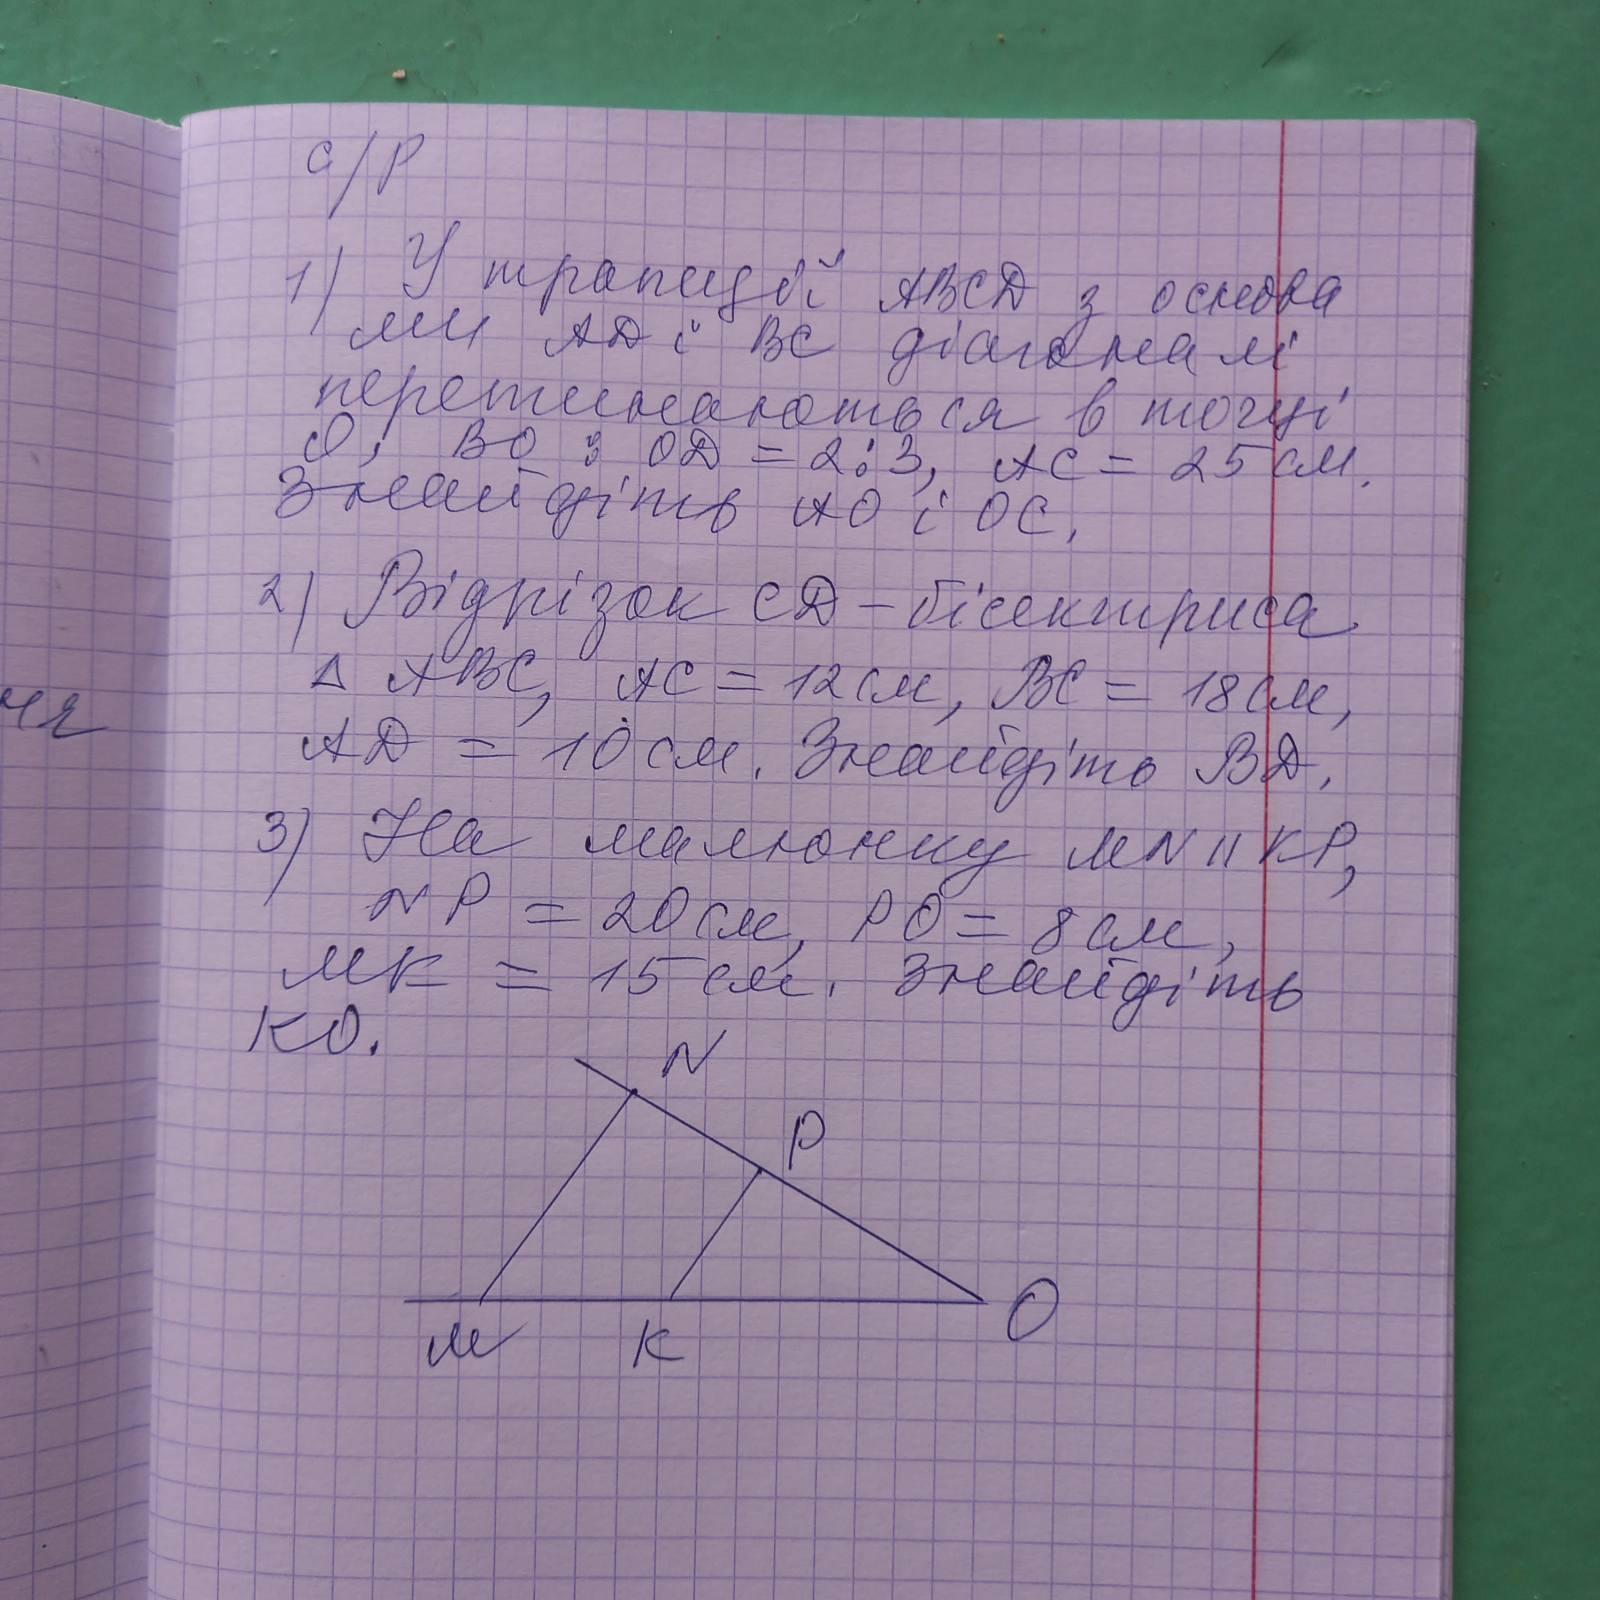 с/р
1) У трапеції ABCD з основа
ми AD і BC діагоналі
перетинаються в точці
O, BO з OD = 2:3, AC = 25 см.
Знайдіть AO і OC.
2) Відрізок CD – бісектриса
△ ABC, AC = 12 см, BC = 18 см,
AD = 10 см. Знайдіть BD.
3) На малюнку MN || KP,
NP = 20 см, PO = 8 см,
MK = 15 см. Знайдіть
KO.
N
P
O
M K